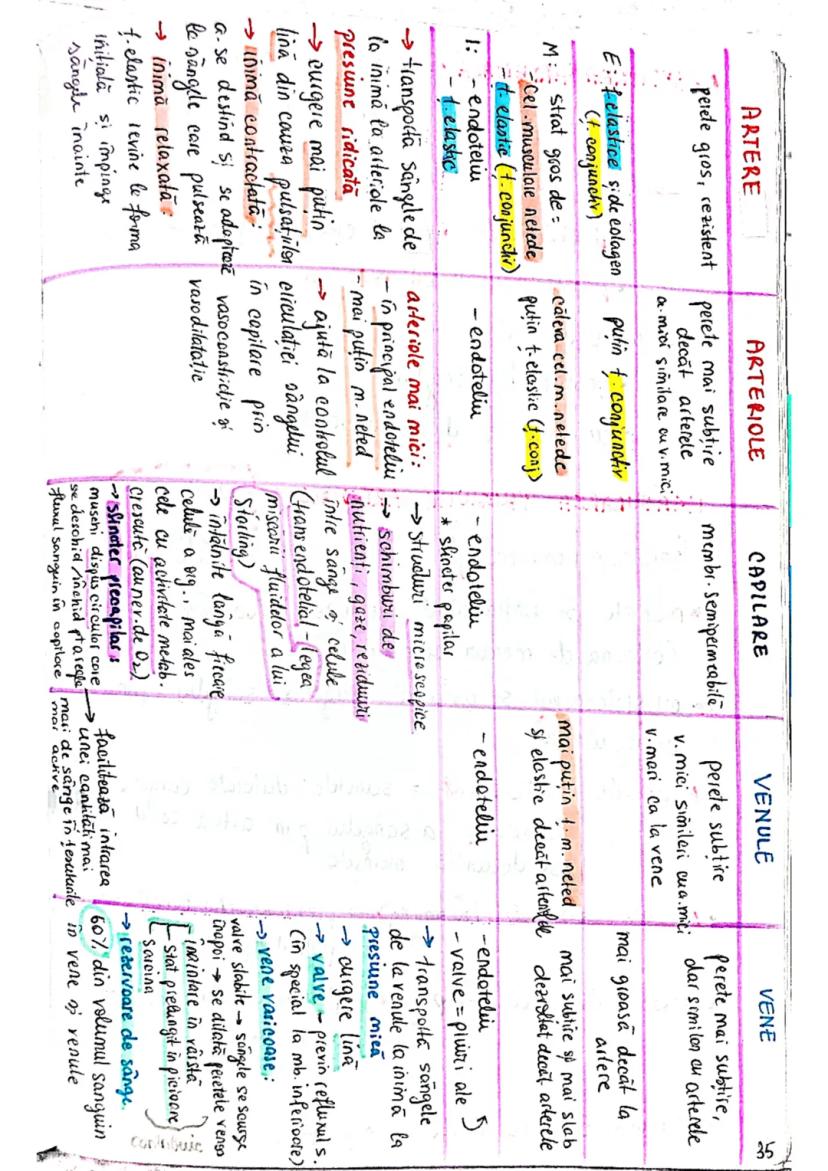 35
ARTERE
perete gros, rezistent
E: ț.elastice și de colagen
(ț.conjunctiv)
M: strat gros de =
cel. musculare netede
- ț. elastic (ț. conjunctiv)
I: - endoteliu
- ț. elastic
→ transportă sângele de
la inimă la arteriole la
presiune ridicată
→ curgere mai puțin
lină din cauza pulsațiilor
→ inimă contractată:
a. se destind și se adaptează
la sângele care pulsează
→ inimă relaxată:
ț. elastic revine la forma
inițială și împinge
sângele înainte
ARTERIOLE
perete mai subțire
decât arterele
a. mici similare cu v. mici
puțin ț. conjunctiv
câteva cel. m. netede
puțin ț. elastic (ț. conj)
- endoteliu
arteriole mai mici:
- în principal endoteliu
- mai puțin m. neted
→ ajută la controlul
circulației sângelui
în capilare prin
vasoconstricție și
vasodilatație
CAPILARE
membr. semipermeabilă
- endoteliu
* sfincter papilar
→ structuri microscopice
→ schimburi de
nutrienți, gaze, reziduuri
între sânge și celule
(transendotelial - legea
mișcării fluidelor a lui
Starling)
→ întâlnite lângă fiecare
celulă a org., mai ales
cele cu activitate metab.
crescută (au nev. de O2)
→ sfincter precapilar:
mușchi dispus circular care
se deschid/închid pt a regla
fluxul sanguin în capilare
VENULE
perete subțire
v. mici similari cu a. mici
v. mari ca la vene
mai puțin ț. m. neted
și elastic decât arterele
- endoteliu
→ facilitează intrarea
unei cantități mai
mari de sânge în țesuturile
mai active
VENE
perete mai subțire,
dar similar cu arterele
mai groasă decât la
artere
mai subțire și mai slab
dezvoltat decât arterele
- endoteliu
- valve = pliuri ale
→ transportă sângele
de la venule la inimă la
presiune mică
→ curgere lină
→ valve - previn refluxul s.
(în special la mb. inferioare)
→ vene varicoase:
valve slabite → sângele se scurge
înapoi → se dilată peretele venos
înaintare în vârstă
stat prelungit în picioare
sarcina
contribuie
→ rezervoare de sânge.
60% din volumul sanguin
în vene și venule